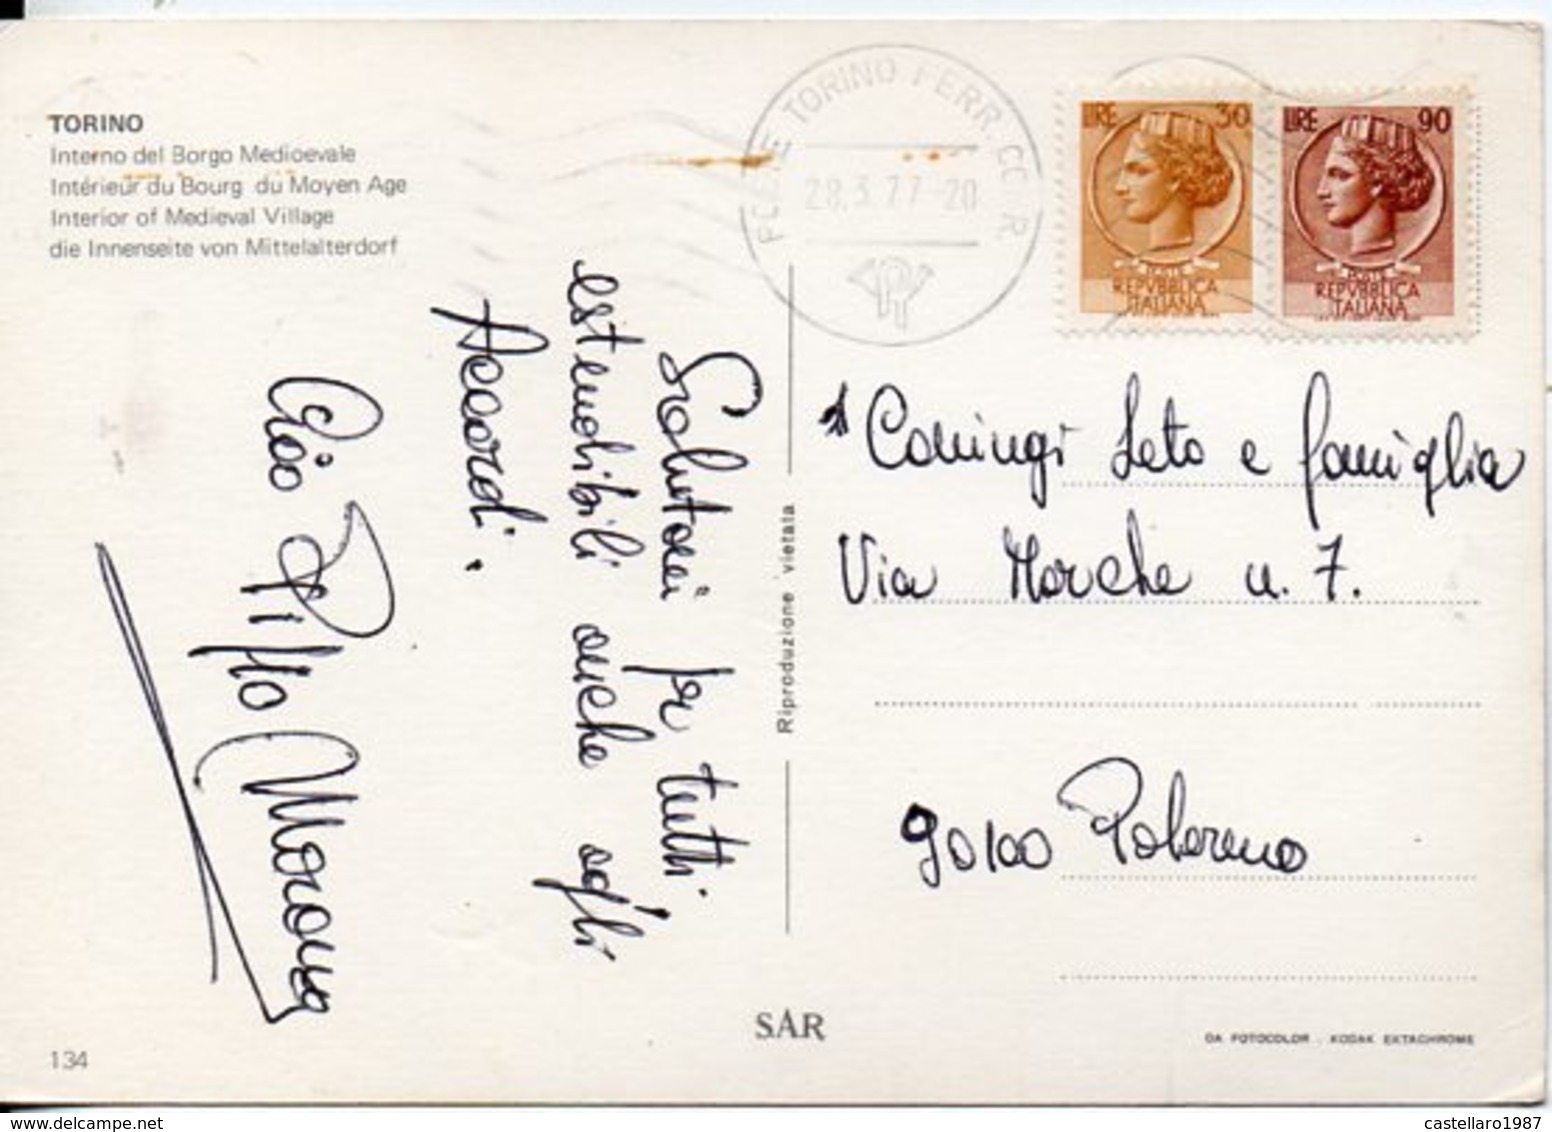 TORINO
Interno del Borgo Medioevale
Intérieur du Bourg du Moyen Age
Interior of Medieval Village
die Innenseite von Mittelalterdorf
TORINO FERR. CORR.
28.3.77-20
LIRE 30
POSTE
REPVBBLICA
ITALIANA
LIRE 90
POSTE
REPVBBLICA
ITALIANA
Salutoni per tutti,
estendibili anche agli
Accordi.
Ciao Pippo
Riproduzione vietata
Leto e famiglia
Via Marche n. 7.
90100 Palermo
SAR
DA FOTOCOLOR . KODAK EKTACHROME
134
castellaro1987